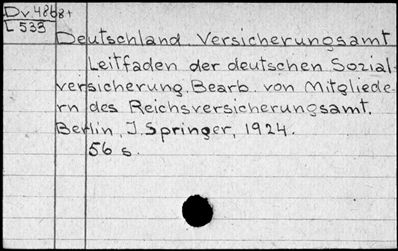 Dv4868+
L 533
Deutschland Versicherungsamt
Leitfaden der deutschen Sozial-
versicherung. Bearb. von Mitgliede-
rn des Reichsversicherungsamt.
Berlin, J. Springer, 1924.
56 s.